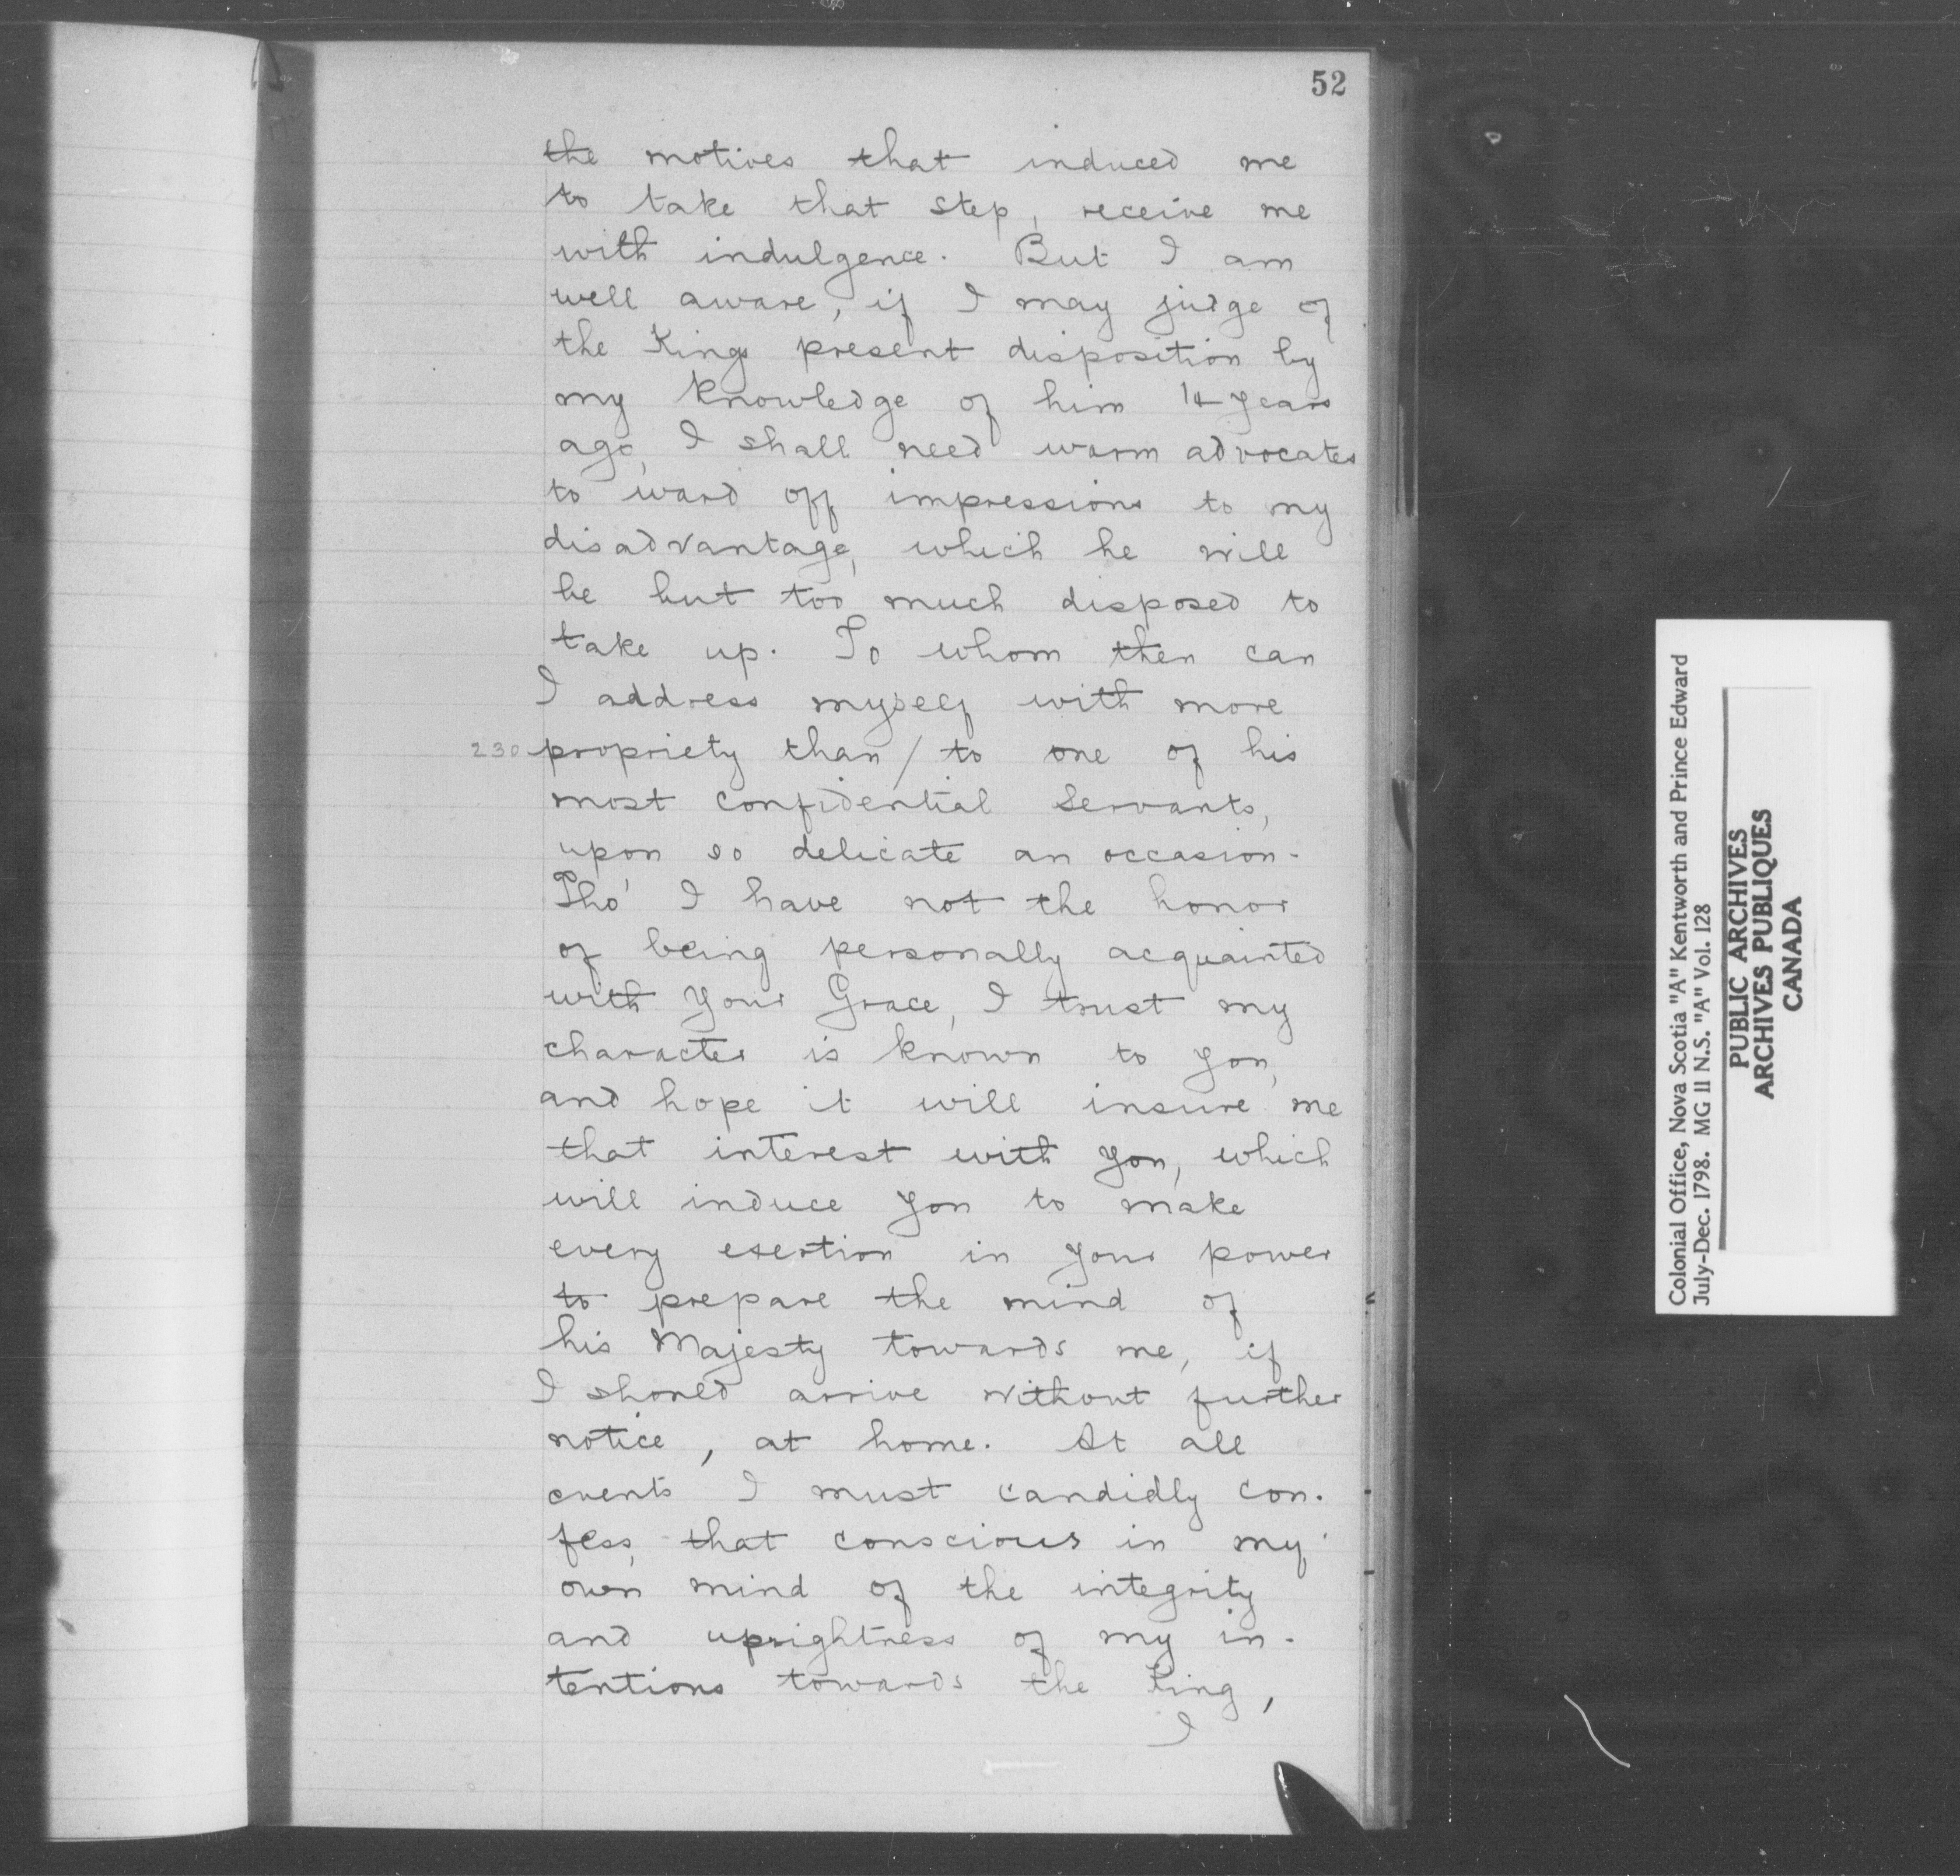 52
the motives that induced me
to take that step, receive me
with indulgence. But I am
well aware, if I may judge of
the Kings present disposition by
my knowledge of him 14 years
ago, I shall need warm advocates
to ward off impressions to my
disadvantage, which he will
be but too much disposed to
take up. To whom then can
I address myself with more
230 propriety than / to one of his
most confidential Servants,
upon so delicate an occasion.
Tho' I have not the honor
of being personally acquainted
with Your Grace, I trust my
character is known to you,
and hope it will insure me
that interest with you, which
will induce you to make
every exertion in your power
to prepare the mind of
his Majesty towards me, if
I should arrive without further
notice, at home. At all
events I must candidly con-
fess, that conscious in my
own mind of the integrity
and uprightness of my in-
tentions towards the King,
I
Colonial Office, Nova Scotia "A" Kentworth and Prince Edward
July-Dec. 1798. MG 11 N.S. "A" Vol. 128
PUBLIC ARCHIVES
ARCHIVES PUBLIQUES
CANADA